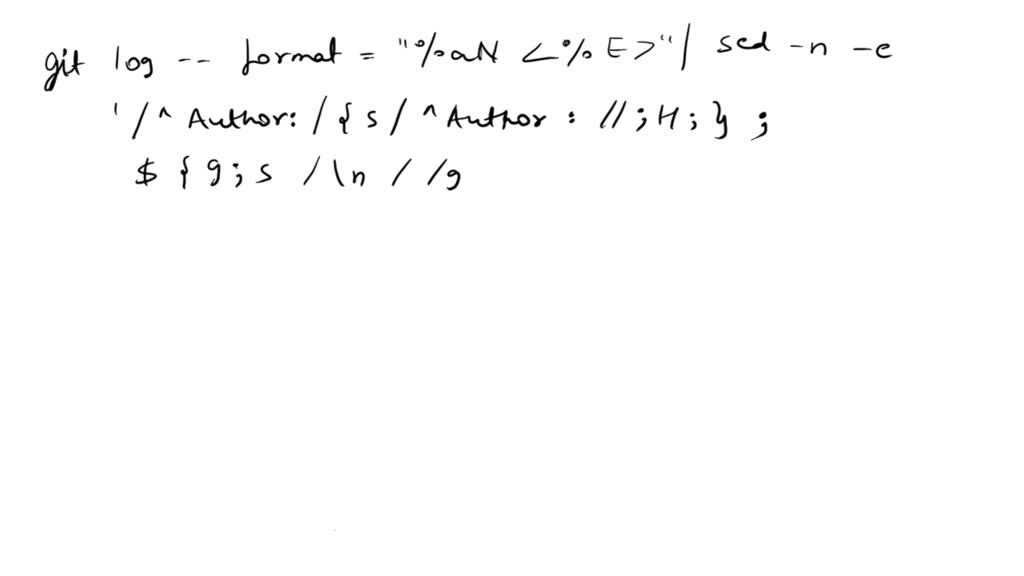 git log -- format = "%aN <%E>"| sed -n -e
'/^Author:/{s/^Author://;H;};
${g;s/\n//g